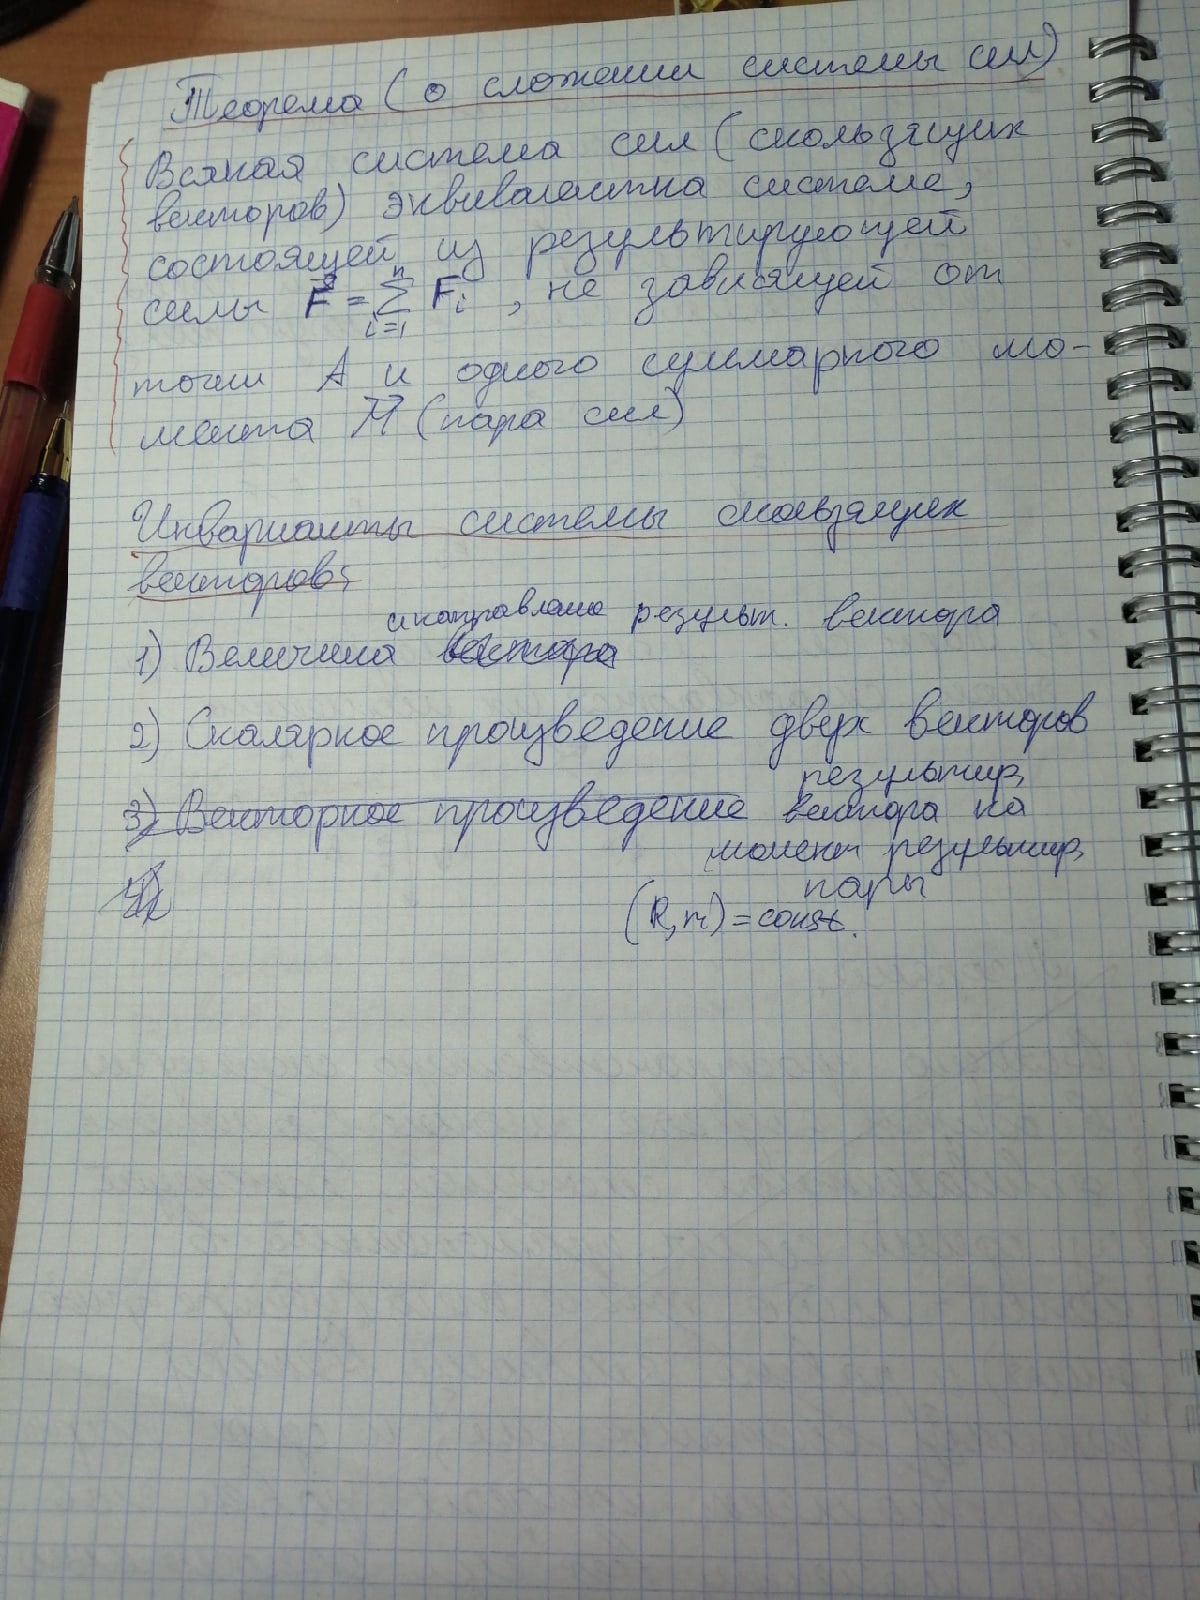 Теорема (о сложении системы сил)
Всякая система сил (скользящих
векторов) эквивалентна системе,
состоящей из результирующей
силы F⃗ = Σ Fᵢ, не зависящей от
n
i=1
точки A и одного суммарного мо-
мента M⃗ (пара сил)
Инварианты системы скользящих
векторов:
и направление результ. вектора
1) Величина вектора
2) Скалярное произведение двух векторов
результир.
3) Векторное произведение вектора на
момент результир.
пары
(R, m) = const.